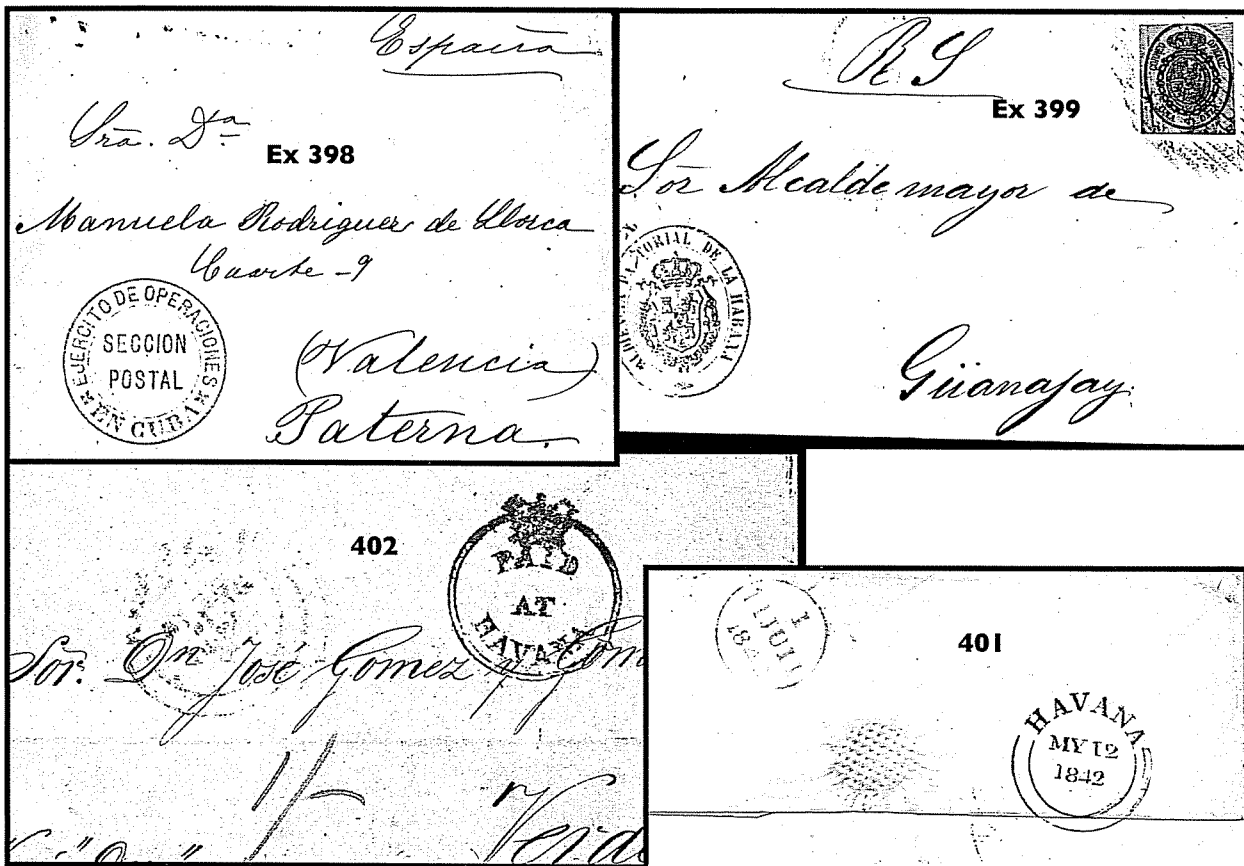 España
Sra. Dª
Ex 398
Manuela Rodriguez de Llorca
Cuarte - 9
EJERCITO DE OPERACIONES
SECCION
POSTAL
EN CUBA
(Valencia)
Paterna.
R S
Ex 399
Sor Alcalde mayor de
DE LA HABANA
Güanajay.
402
PAID
AT
HAVANA
Sor. Dn José Gomez y
1/-
401
HAVANA
MY 12
1842